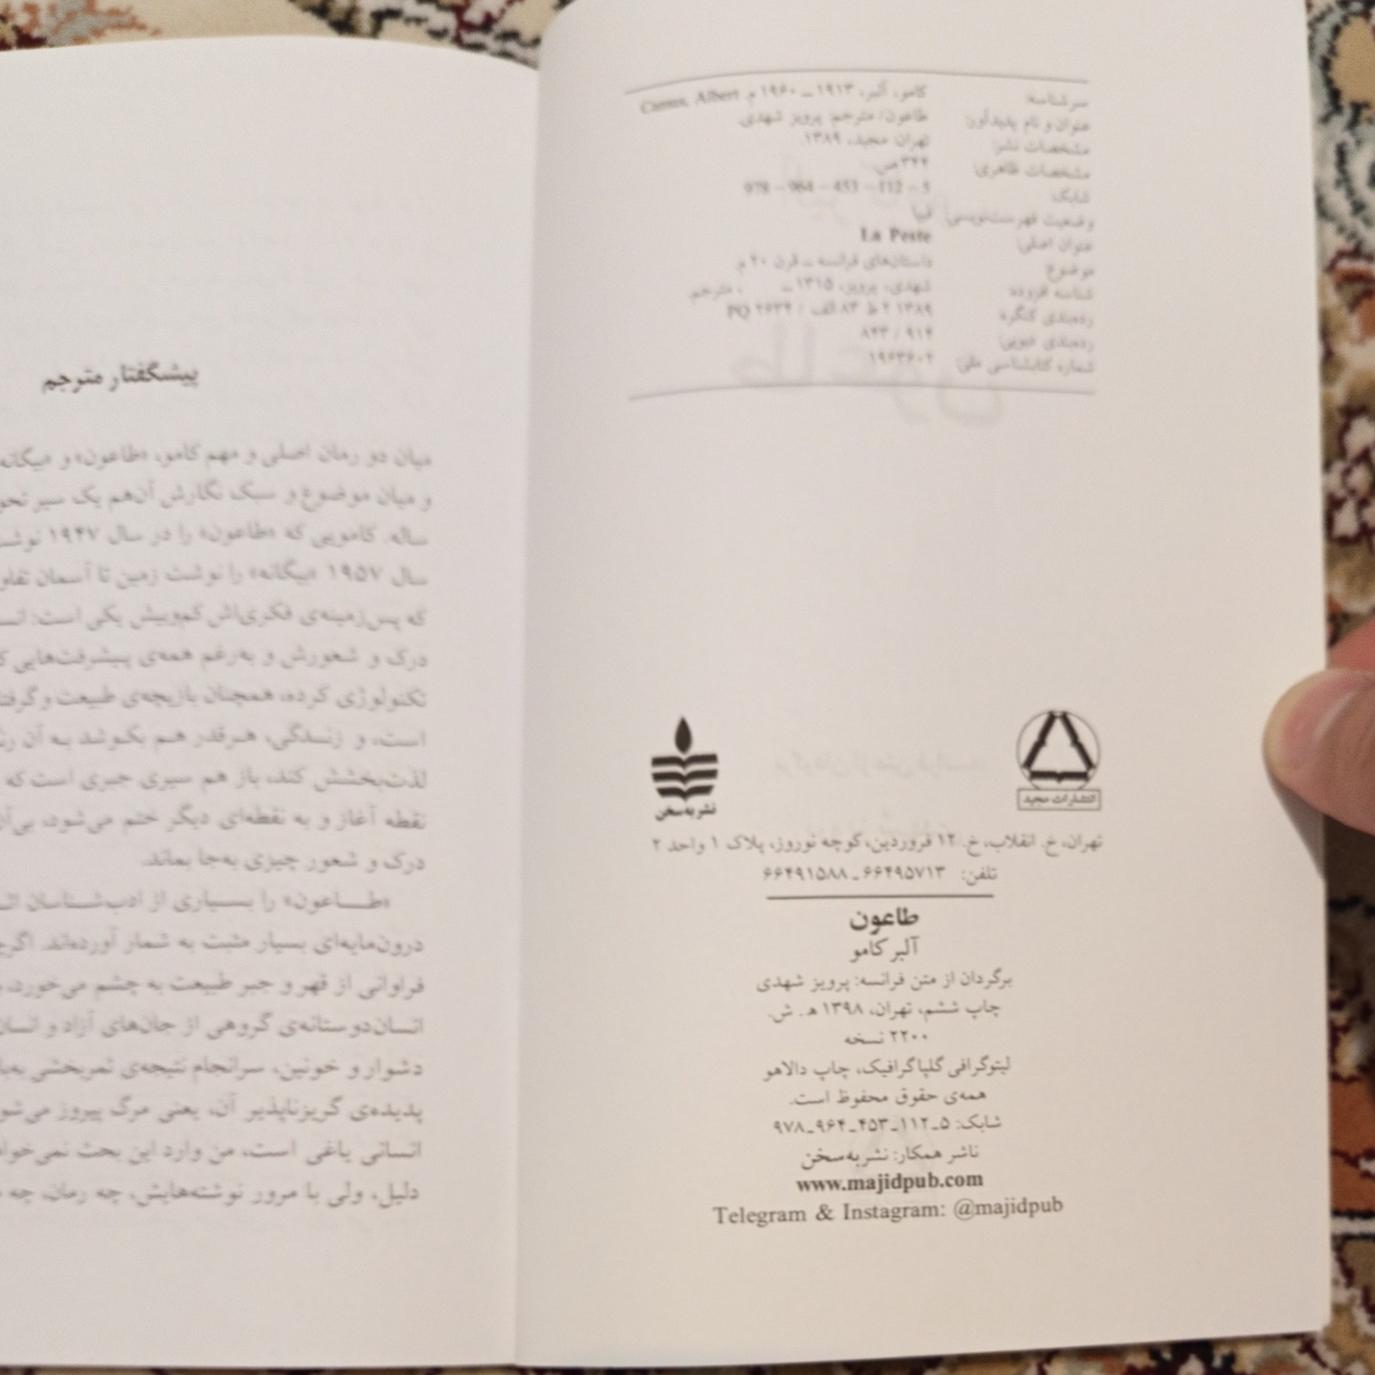 سرشناسه: کامو، آلبر، ۱۹۱۳ ـ ۱۹۶۰ م. Camus, Albert
عنوان و نام پدیدآور: طاعون/ مترجم: پرویز شهدی.
مشخصات نشر: تهران: مجید، ۱۳۸۹.
مشخصات ظاهری: ۳۴۴ ص.
شابک: 978 – 964 – 453 – 112 – 5
وضعیت فهرست‌نویسی: فیپا
عنوان اصلی: La Peste
موضوع: داستان‌های فرانسه ـ قرن ۲۰ م.
شناسه افزوده: شهدی، پرویز، ۱۳۱۵ ـ ، مترجم.
رده‌بندی کنگره: ۱۳۸۹ ۲ ط ۸۳ الف / PQ ۲۶۳۴
رده‌بندی دیویی: ۹۱۴ / ۸۴۳
شماره کتابشناسی ملی: ۱۹۶۳۶۰۲
انتشارات مجید
نشر به‌سخن
تهران، خ. انقلاب، خ. ۱۲ فروردین، کوچه نوروز، پلاک ۱ واحد ۲
تلفن: ۶۶۴۹۵۷۱۳ ـ ۶۶۴۹۱۵۸۸
طاعون
آلبر کامو
برگردان از متن فرانسه: پرویز شهدی
چاپ ششم، تهران، ۱۳۹۸ ه‍. ش.
۲۲۰۰ نسخه
لیتوگرافی گلپا گرافیک، چاپ دالاهو
همه‌ی حقوق محفوظ است.
شابک: ۵ـ۱۱۲ـ۴۵۳ـ۹۶۴ـ۹۷۸
ناشر همکار: نشر به‌سخن
www.majidpub.com
Telegram & Instagram: @majidpub
پیشگفتار مترجم
میان دو رمان اصلی و مهم کامو، «طاعون» و «بیگانه
و میان موضوع و سبک نگارش آن‌هم یک سیر
ساله. کامویی که «طاعون» را در سال ۱۹۴۷
سال ۱۹۵۷ «بیگانه» را نوشت زمین تا آسمان
که پس‌زمینه‌ی فکری‌اش کم‌وبیش یکی است:
درک و شعورش و به‌رغم همه‌ی پیشرفت‌هایی
تکنولوژی کرده، همچنان بازیچه‌ی طبیعت و
است، و زندگی، هرقدر هم بکوشد به آن
لذت‌بخشش کند، باز هم سیری جبری است که
نقطه آغاز و به نقطه‌ای دیگر ختم می‌شود،
درک و شعور چیزی به‌جا بماند.
«طاعون» را بسیاری از ادب‌شناسان
درون‌مایه‌ای بسیار مثبت به شمار آورده‌اند.
فراوانی از قهر و جبر طبیعت به چشم می‌خورد،
انسان‌دوستانه‌ی گروهی از جان‌های آزاد و
دشوار و خونین، سرانجام نتیجه‌ی ثمربخشی
پدیده‌ی گریزناپذیر آن، یعنی مرگ پیروز
انسانی یاغی است، من وارد این بحث
دلیل، ولی با مرور نوشته‌هایش، چه رمان، چه